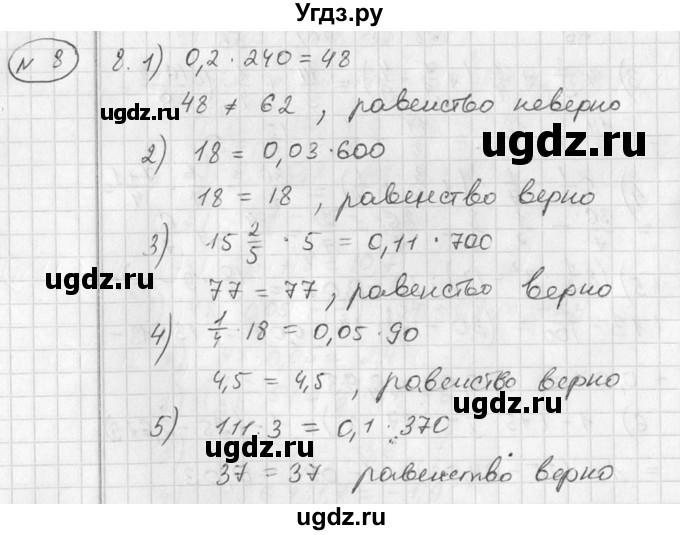 Угдз.ру
№ 8
8. 1) 0,2 · 240 = 48
48 ≠ 62, равенство неверно
ugdz.ru
ugdz.ru
2) 18 = 0,03 · 600
18 = 18, равенство верно
3) 15 2/5 · 5 = 0,11 · 700
ugdz.ru
77 = 77, равенство верно
4) 1/4 · 18 = 0,05 · 90
ugdz.ru
4,5 = 4,5, равенство верно
5) 111 : 3 = 0,1 · 370
ugdz.ru
37 = 37 равенство верно
ugdz.ru
ugdz.ru